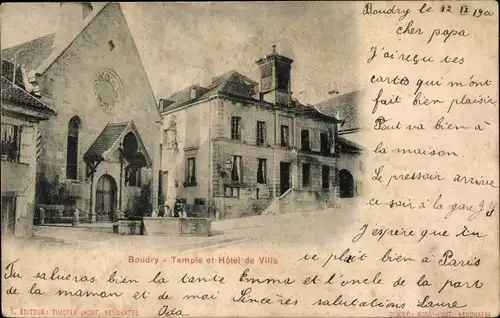 Boudry le 12 IX 190
cher papa
J'ai reçu tes
cartes qui m'ont
fait bien plaisir
Tout va bien à
la maison
Le pressoir arrive
ce soir à la gare
J'espère que tu
te plait bien à Paris
Boudry - Temple et Hôtel de Ville
Tu salueras bien la tante Emma et l'oncle de la part
de la maman et de moi Sincères salutations Laure
Ida
V. ÉDITEUR: TIMOTÉE JACOT, NEUCHATEL